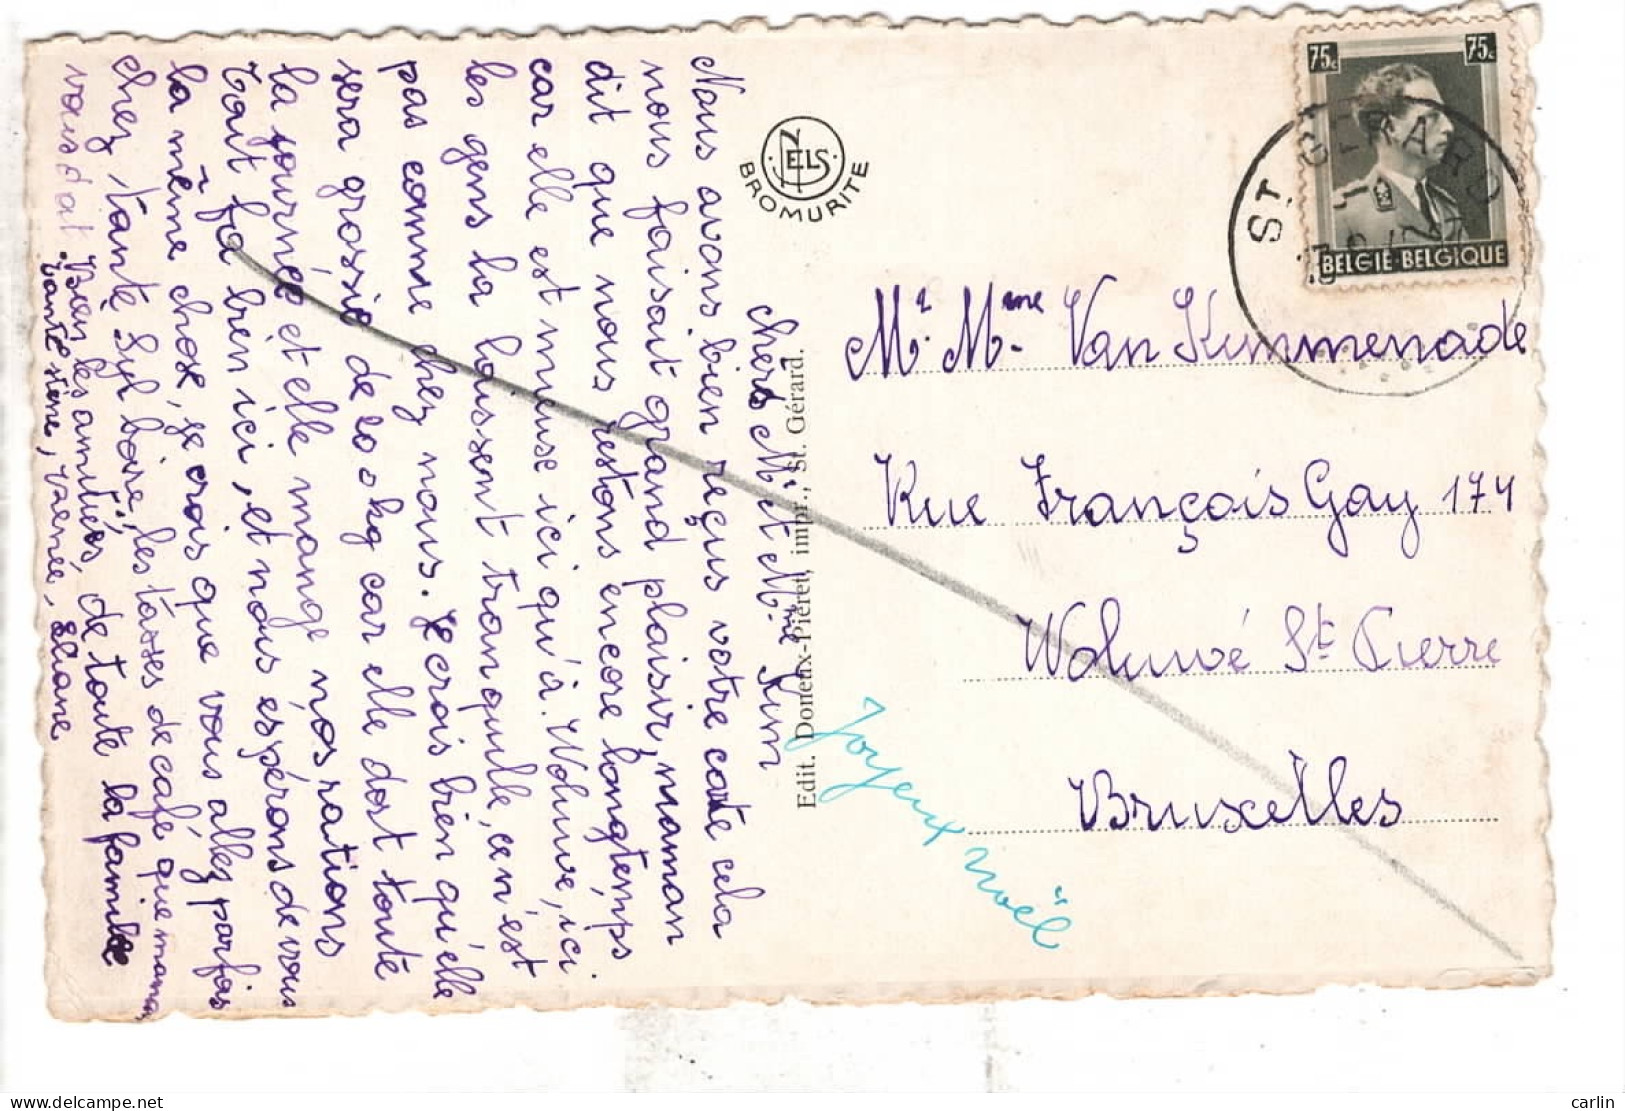 Chers Mr et Mme Kim
Nous avons bien reçus votre carte cela
nous faisait grand plaisir, maman
dit que nous restons encore longtemps
car elle est mieuse ici qu'à Woluwe, ici
les gens la laissent tranquille, ce n'est
pas comme chez nous. Je crois bien qu'elle
sera grossie de 100 kg car elle dort toute
la journée et elle mange nos rations
Tait fa bien ici, et nous éspérons de vous
la même chose, je crois que vous allez parfois
chez tante Syl boire les tasses de café que maman
vous doit. Bien les amitiés, de toute la famille
tante, Eliane
NELS
BROMURITE
Edit. Doneux-Piéret, impr., St. Gérard.
75c 75c
BELGIE-BELGIQUE
ST GERARD
Mr. Mme Van Kimmenade
Rue François Gay 174
Woluwé St Pierre
Bruxelles
Joyeux Noël
carlin